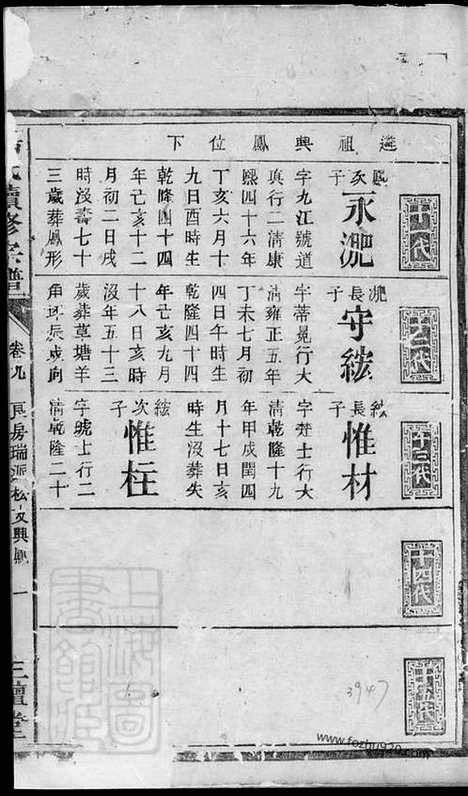 遊祖興鳳位下
十一代
熈永子
永淝
字九江號道
真行二清康
熙四十六年
丁亥六月十
九日酉時生
乾隆四十四
年己亥十二
月初二日戌
時沒壽七十
三歲葬鳳形
十二代
淝長子
守絃
字蒂晃行大
清雍正五年
丁未七月初
四日午時生
乾隆四十四
年己亥九月
十八日亥時
沒年五十三
歲葬草塘羊
角環辰戌向
十三代
絃長子
惟材
字楚士行大
清乾隆十九
年甲戌閏四
月十七日亥
時生沒葬失
絃次子
惟柱
字號上行二
清乾隆二十
十四代
十五代
氏續修宗譜
卷九
房瑞派松
興
一
三槐堂
上海圖書館藏
3947
www.fozhu920.com